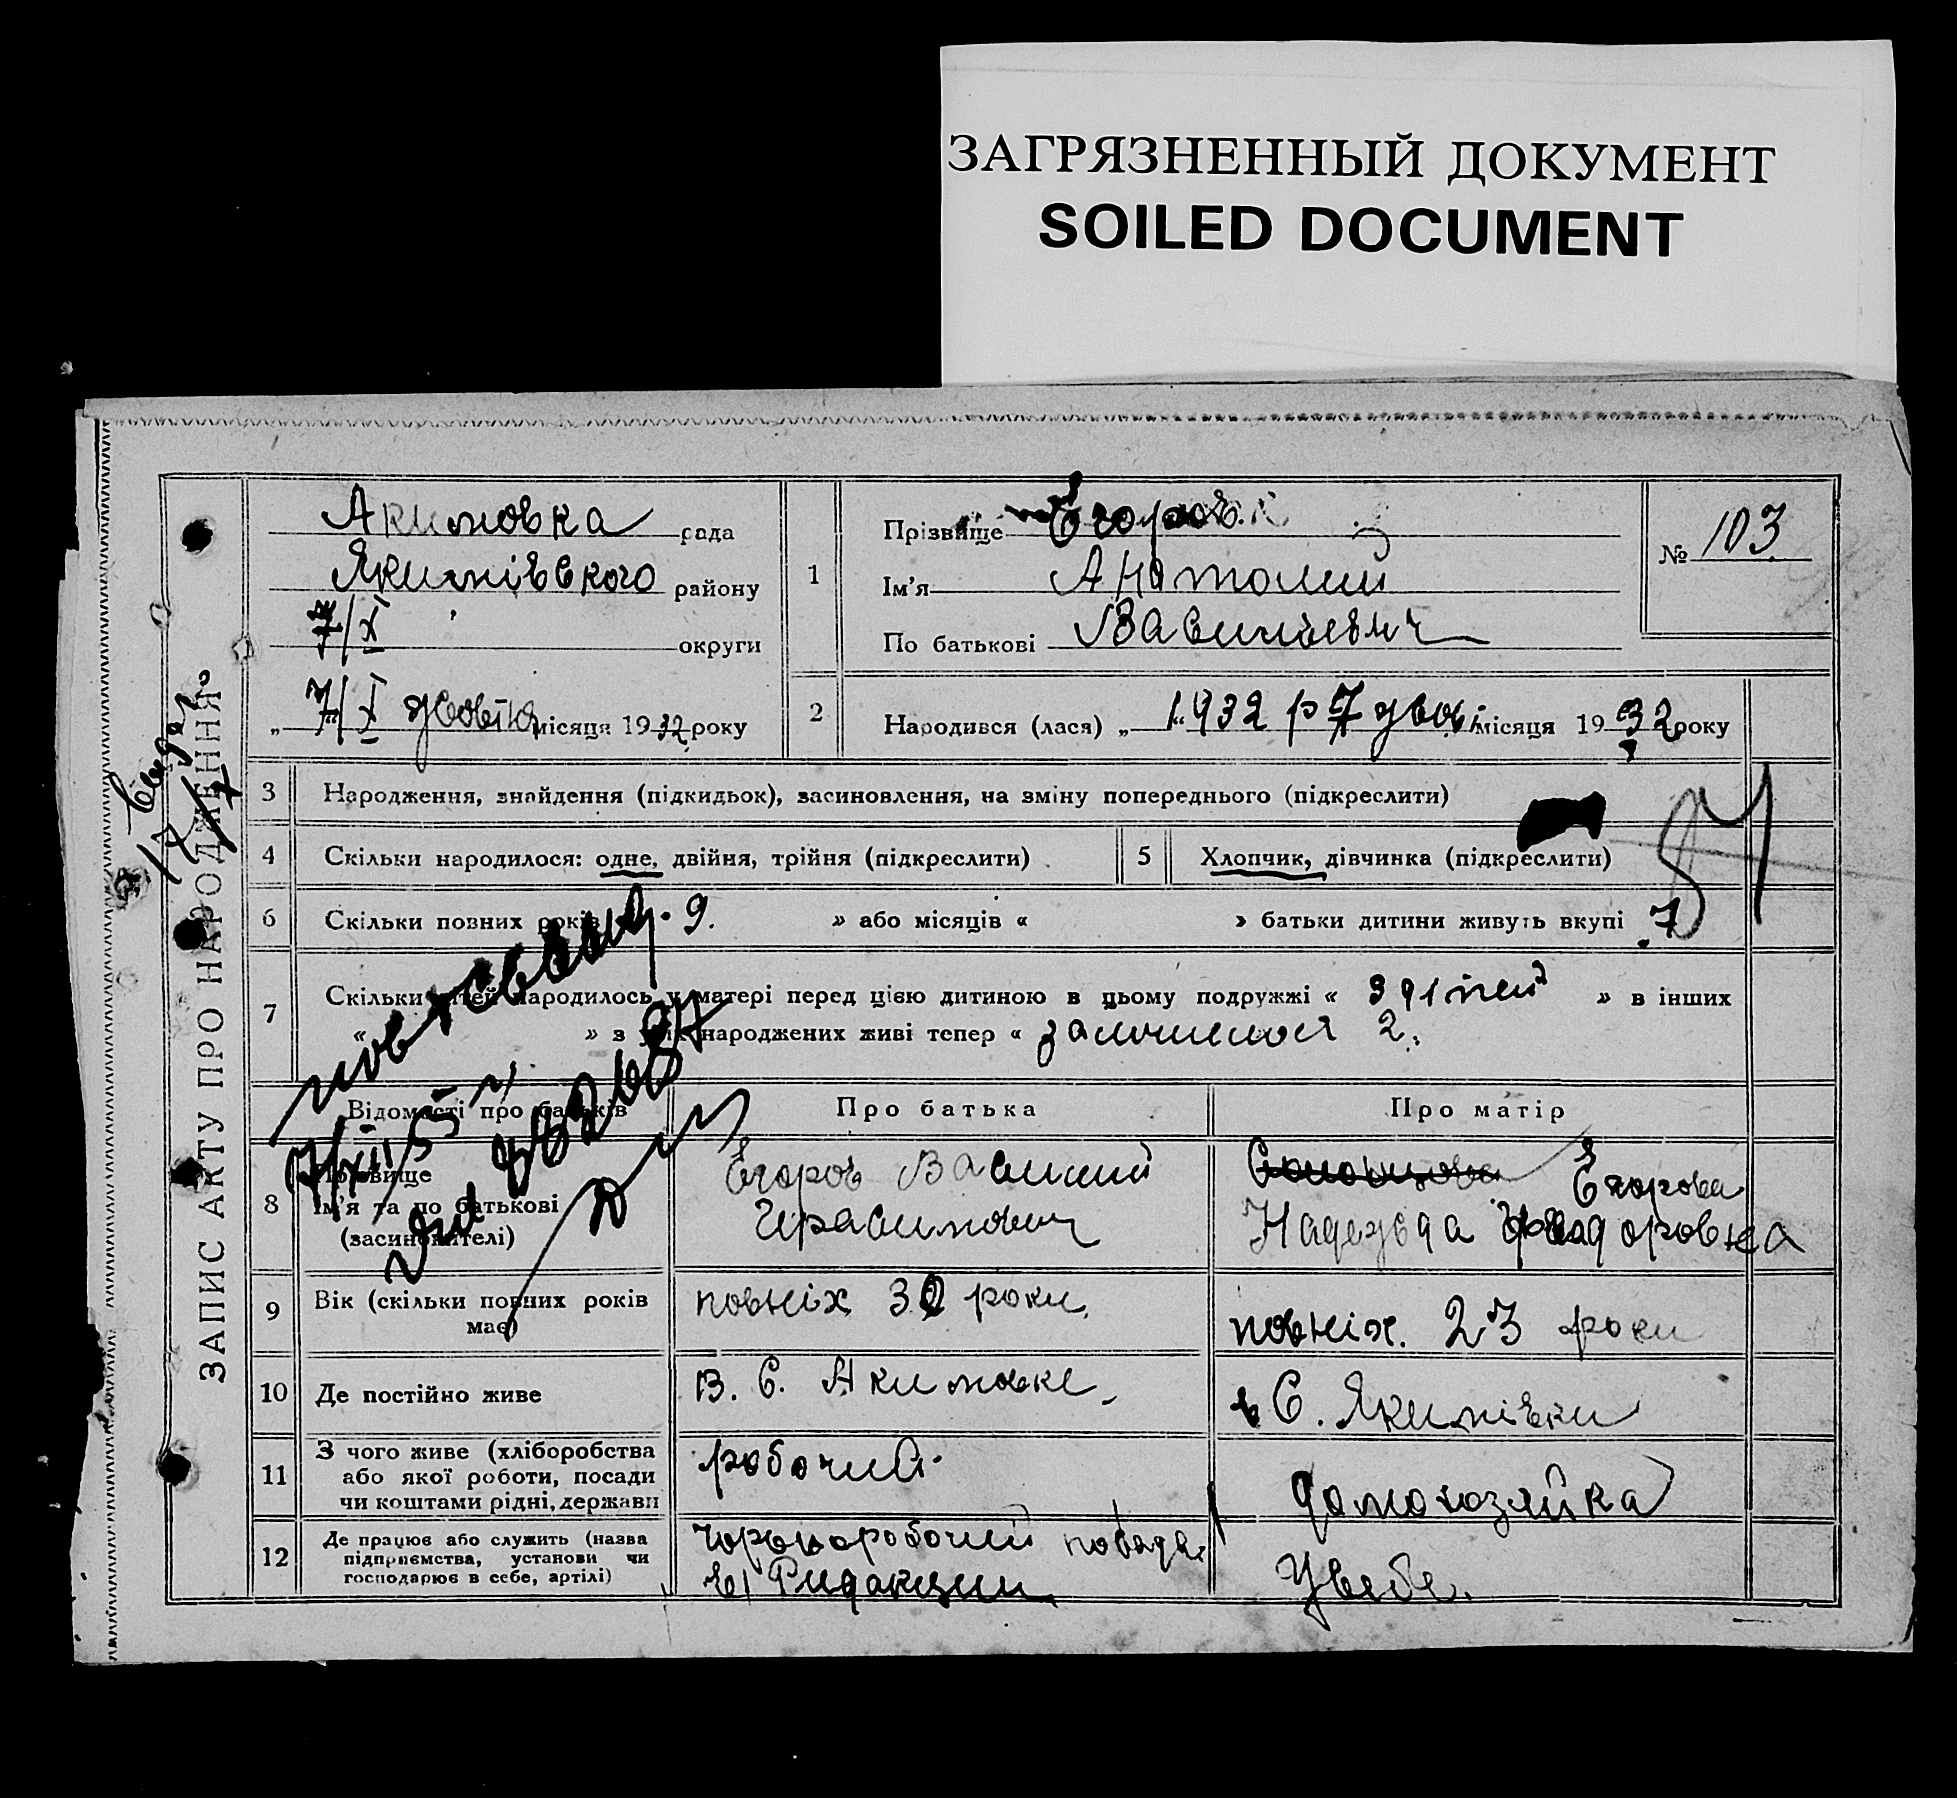 ЗАГРЯЗНЕННЫЙ ДОКУМЕНТ
SOILED DOCUMENT
ЗАПИС АКТУ ПРО НАРОДЖЕННЯ
Акимовка рада
Якимівського району
7/X округи
„ 7/X жовтня місяця 1932 року
1
Прізвище Егоров
Ім'я Анатолий
По батькові Васильевич
№ 103
2
Народився (лася) „ 1932 р 7 місяця 1932 року
3 Народження, знайдення (підкидьок), засиновлення, на зміну попереднього (підкреслити)
4 Скільки народилося: одне, двійня, трійня (підкреслити)
5 Хлопчик, дівчинка (підкреслити)
6 Скільки повних років 9. » або місяців « » батьки дитини живуть вкупі 7
7 Скільки дітей народилось у матері перед цією дитиною в цьому подружжі « » в інших
« » з усіх народжених живі тепер « 2.
Відомості про батьків
Про батька
Про матір
8 Прізвище
Ім'я та по батькові
(засиновителі)
Егоров Василий
Герасимович
Егорова
Надежда
9 Вік (скільки повних років
має)
повніх 32 роки
повніх. 23 роки
10 Де постійно живе
в. с. Акимовке
в с. Якимівки
11 З чого живе (хліборобства
або якої роботи, посади
чи коштами рідні, держави
робочий
домохозяйка
12 Де працює або служить (назва
підприємства, установи чи
господарює в себе, артілі)
чорноробочий
Ридакции
У себе.